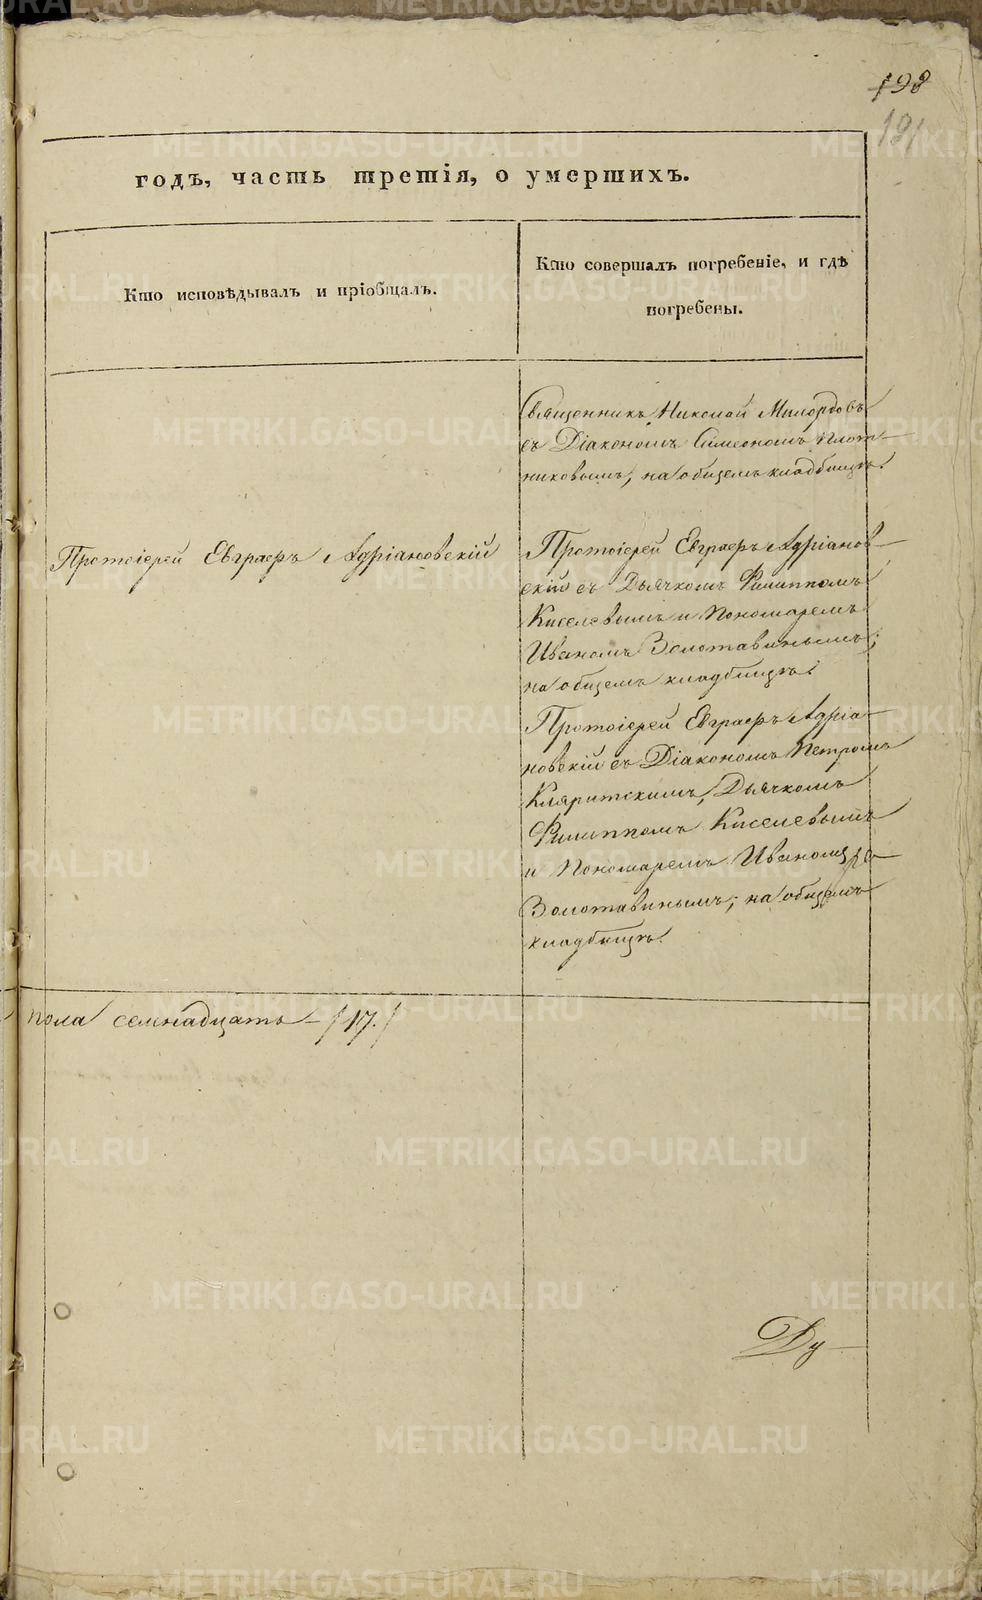 198
191
годъ, часть третія, о умершихъ.
Кто исповѣдывалъ и пріобщалъ.
Кто совершалъ погребеніе, и гдѣ
погребены.
Священникъ Николай Милордовъ
съ Діакономъ Симеономъ Плот-
никовымъ, на общемъ кладбищѣ.
Протоіерей Евграфъ Адріановскій
Протоіерей Евграфъ Адріанов-
скій съ Дьячкомъ Филиппомъ
Киселевымъ и Пономаремъ
Иваномъ Золотавинымъ;
на общемъ кладбищѣ.
Протоіерей Евграфъ Адріа-
новскій съ Діакономъ Петромъ
Кляритскимъ, Дьячкомъ
Филиппомъ Киселевымъ
и Пономаремъ Иваномъ
Золотавинымъ; на общемъ
кладбищѣ.
пола семнадцать - /17./
Ду-
METRIKI.GASO-URAL.RU